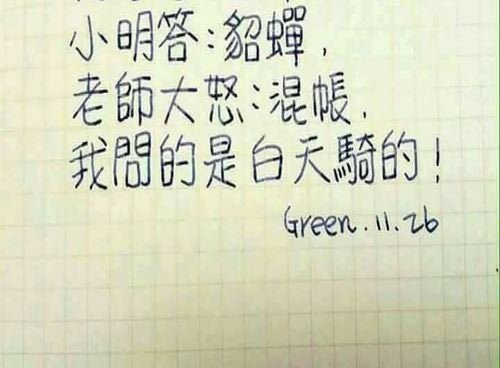 小明答:貂蟬,
老師大怒:混帳,
我問的是白天騎的!
Green.11.26